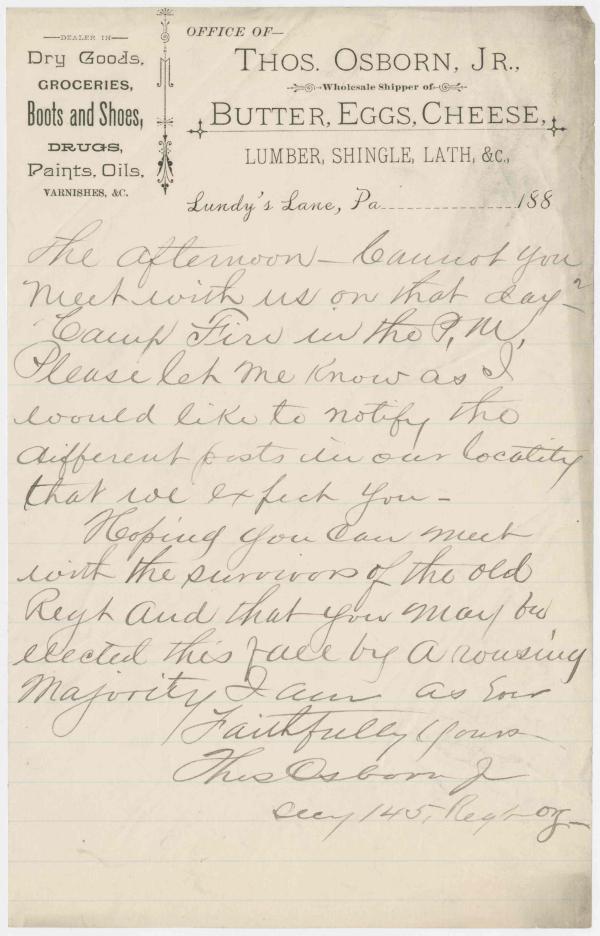 DEALER IN
Dry Goods,
GROCERIES,
Boots and Shoes,
DRUGS,
Paints, Oils,
VARNISHES, &C.
OFFICE OF—
THOS. OSBORN, JR.,
Wholesale Shipper of
BUTTER, EGGS, CHEESE,
LUMBER, SHINGLE, LATH, &c.,
Lundy's Lane, Pa. 188
the afternoon – Cannot you
meet with us on that day –
Camp Fire in the P.M.
Please let me know as I
would like to notify the
different posts in our locality
that we expect you –
Hoping you can meet
with the survivors of the old
Regt and that you may be
elected this fall by a rousing
Majority I am as Ever
Faithfully Yours
Thos Osborn Jr
Secy 145, Regt org –